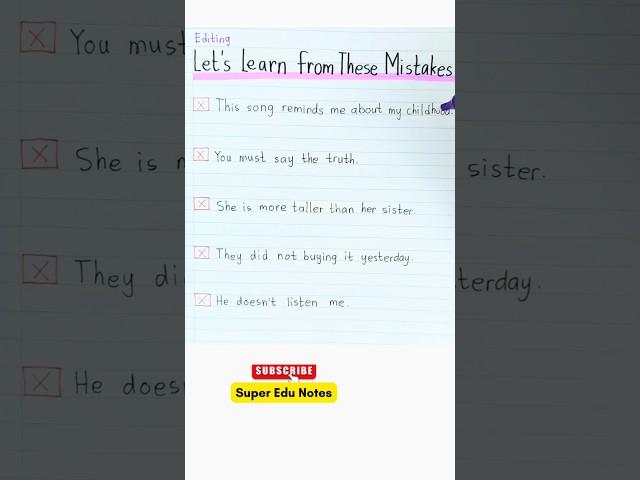 Editing
Let's Learn from These Mistakes
This song reminds me about my childhood.
You must say the truth.
She is more taller than her sister.
They did not buying it yesterday.
He doesn't listen me.
SUBSCRIBE
Super Edu Notes
You must
She is
sister.
They di
terday.
He does